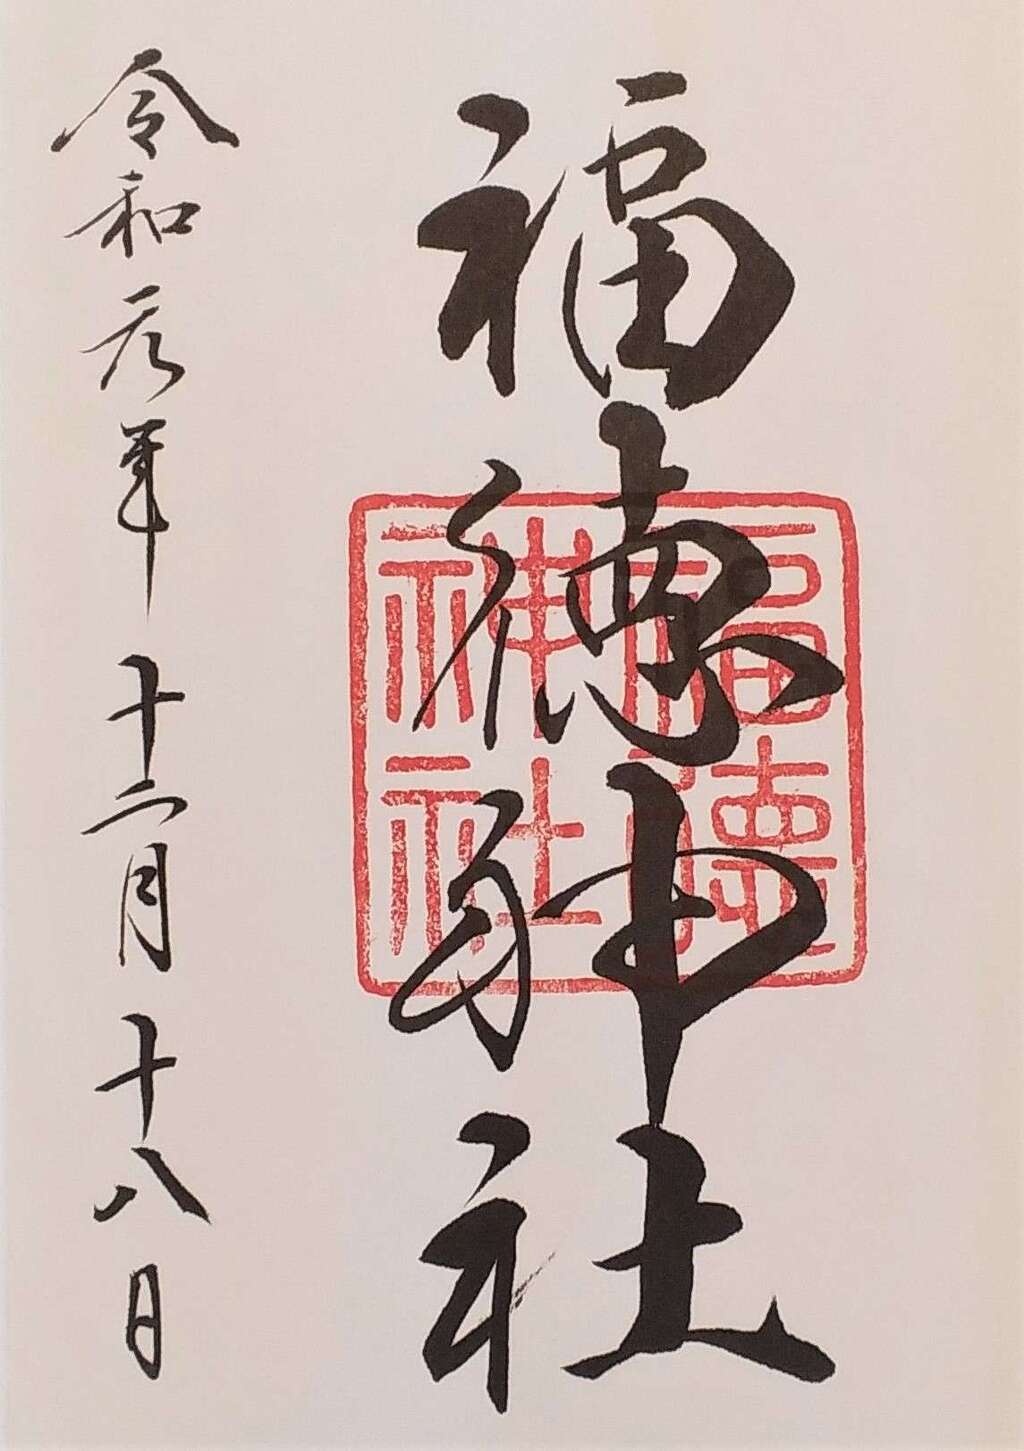 福徳神社
福德
神社
令和元年十二月十八日